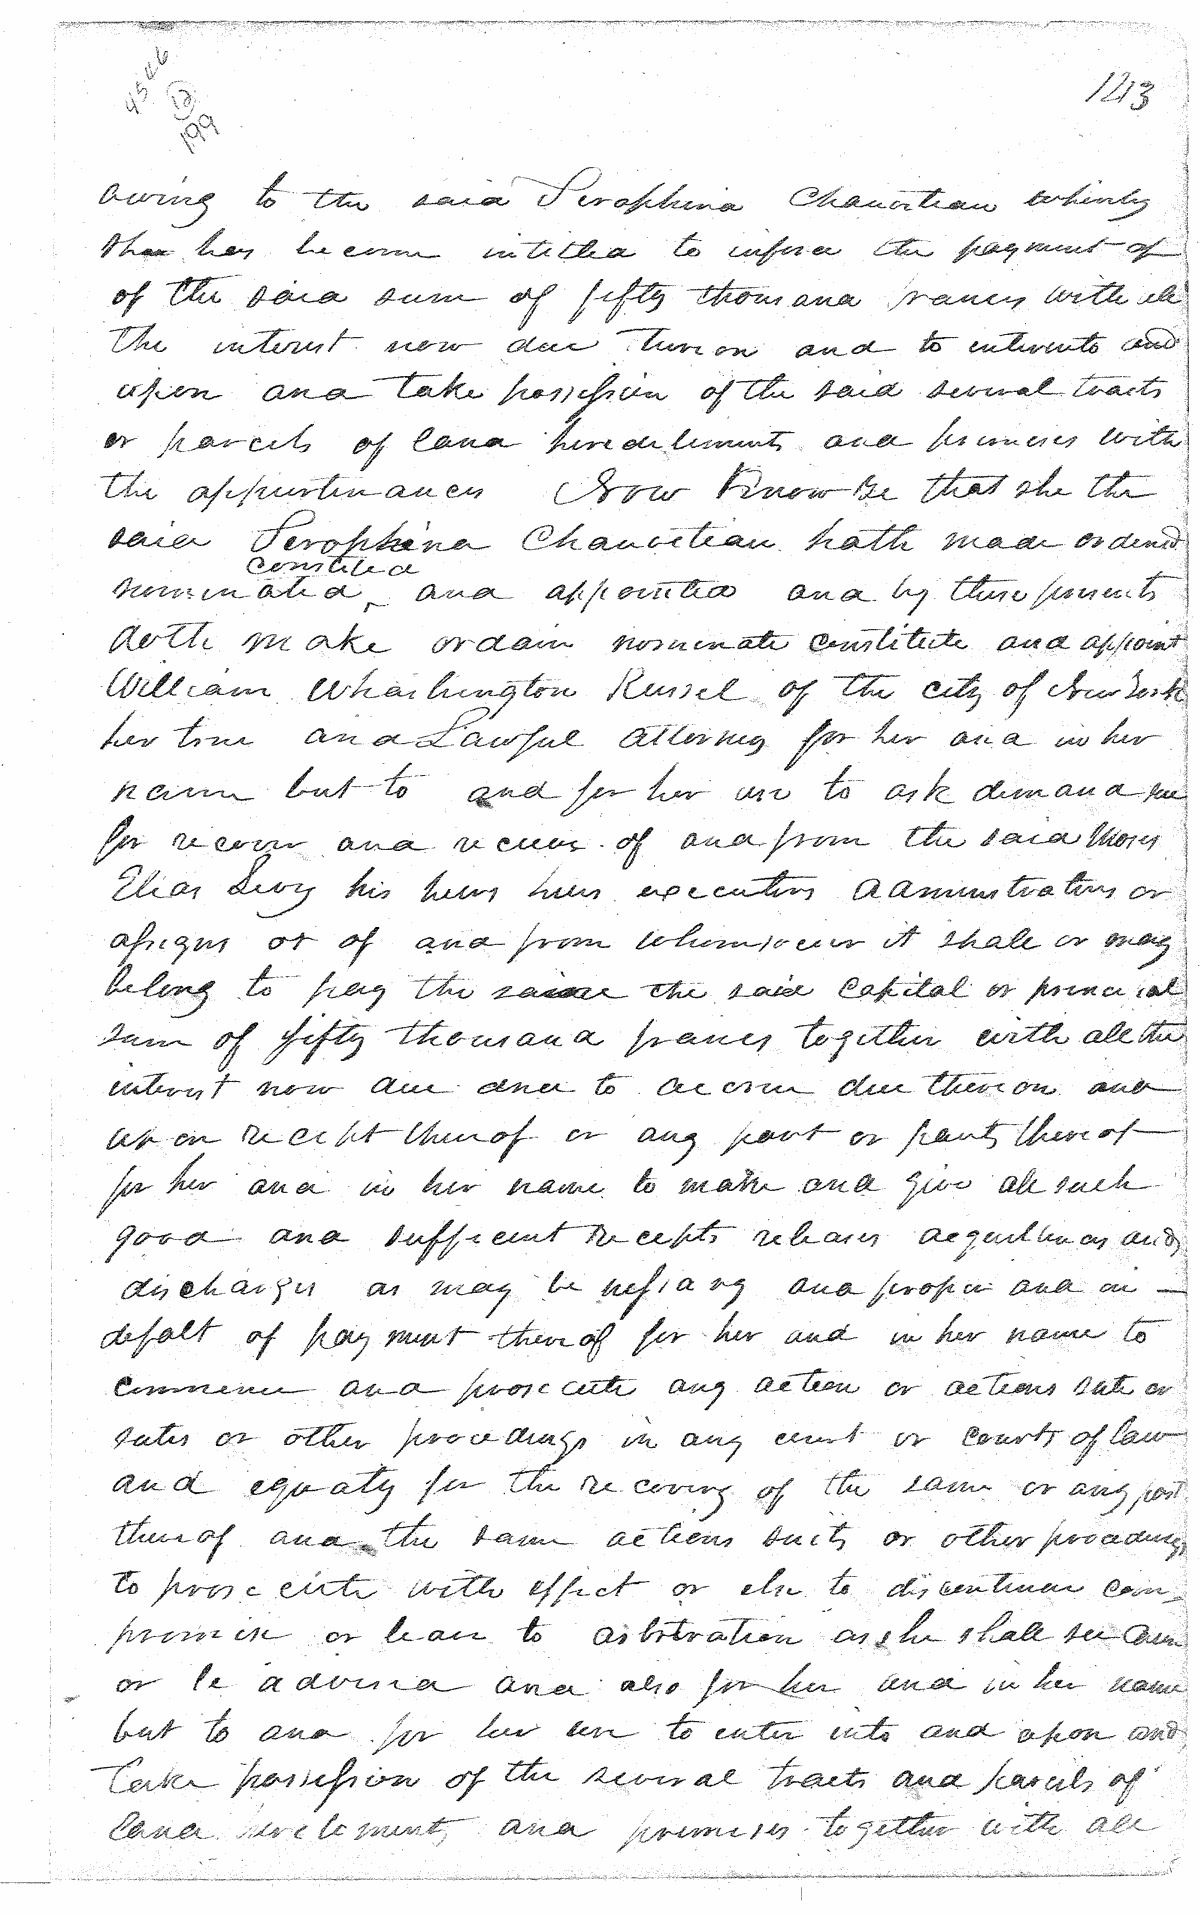 4546
199
123
owing to the said Seraphina Chauviteau whereby
she has become intitled to inforce the payment of
of the said sum of fifty thousand francs with all
the interest now due thereon and to enterinto and
upon and take possession of the said several tracts
or parcels of land heredetiments and premises with
the appurtinances Now Know Ye that she the
said Seraphina Chauviteau hath made ordened
constited
nominated, and appointed and by these presents
doth make ordain nominate constitute and appoint
William Whashington Russel of the city of New York
her true and Lawful attorney for her and in her
name but to and for her use to ask demand sue
for recover and recieve of and from the said Moses
Elias Levy his heirs heirs executors administrators or
assigns or of and from whomsoever it shall or may
belong to pay the same the said capital or principal
sum of fifty thousand francs together with all the
interest now due and to accrue due thereon and
upon recept thereof or any part or parts thereof
for her and in her name to make and give all such
good and sufficent recepts releases acquittances and
discharges as may be nessary and proper and in
defalt of payment thereof for her and in her name to
commence and prosecute any action or actions sute or
sutes or other procedings in any court or courts of law
and equaty for the recoving of the same or any part
thereof and the same actions suits or other procedings
to prosecute with effect or else to discontinue com
promise or leave to arbitration as she shall see
or be advised and also for her and in her name
but to and for her use to enter into and upon and
Take possession of the several tracts and parcels of
land and premises together with all